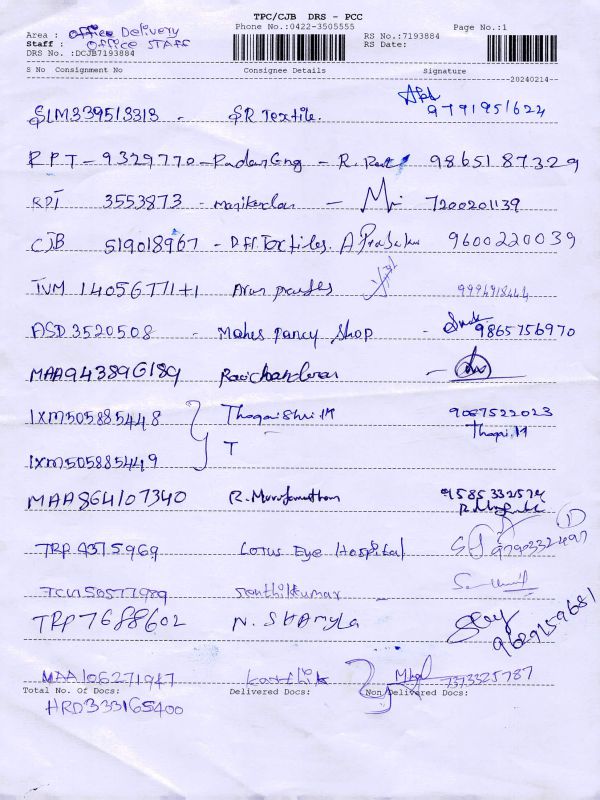 TPC/CJB DRS - PCC
Phone No.:0422-3505555
Page No.:1
Area : office Delivery
RS No.:7193884
Staff : office STAFF
RS Date:
DRS No. :DCJB7193884
S No Consignment No Consignee Details Signature
20240214
SLM339513313 - SR Textile. 9791951624
RPT - 9329770 - Eng - R. 9865187329
3553873 - - 7200201139
CJB 519018967 - Textiles. A Prabhu 9600220039
TVM 14056771+1 Arun
ASD3520508 - Mahes Fancy Shop - 9865756970
MAA943896189 Ravichandran -
IXM505885448 Thagaishri.M 9087522023
Thagai.M
IXM505885449 T
MAA864107340 R. 9585332574
TRP4375969 Lotus Eye Hospital 9790332497
1
Senthilkumar -
TRP7688602 N. SHARMLA 9629259681
MAA106271947 karthik 7373325787
Total No. Of Docs: Delivered Docs: Non Delivered Docs:
HRD333165400